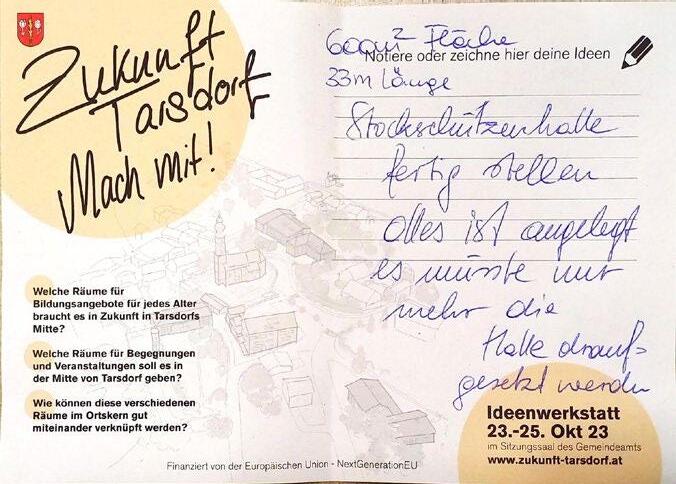 Zukunft
Tarsdorf
Mach mit!
Welche Räume für
Bildungsangebote für jedes Alter
braucht es in Zukunft in Tarsdorfs
Mitte?
Welche Räume für Begegnungen
und Veranstaltungen soll es in
der Mitte von Tarsdorf geben?
Wie können diese verschiedenen
Räume im Ortskern gut
miteinander verknüpft werden?
Finanziert von der Europäischen Union - NextGenerationEU
600m² Fläche
Notiere oder zeichne hier deine Ideen
33m Länge
Stockschützenhalle
fertig stellen
alles ist angelegt
es müsste nur
mehr die
Halle drauf=
gesetzt werden
Ideenwerkstatt
23.-25. Okt 23
im Sitzungssaal des Gemeindeamts
www.zukunft-tarsdorf.at